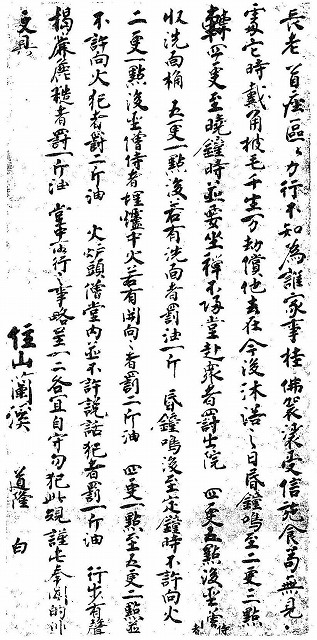 長老首座區々力行不知為誰家事挂佛袈裟受信施食苟無見
處它時戴角披毛千生万劫償他去在今後沐浩之日昏鐘鳴至二更三點
轉四更至曉鐘時並要坐禅不歸堂赴衆者罰出院 四更五點後坐
收洗面桶 五更一點後若有洗面者罰油一斤 昏鐘鳴後至定鐘時不許向火
二更一點後坐僧侍者埋爐中火若有開向之者罰二斤油 四更一點至五更二點並
不許向火犯者罰二斤油 火炉頭僧堂内並不許説話犯者罰一斤油 行步有聲
揭簾麁糙者罰一斤油 堂中所行之事略呈一二各宜自守勿犯此規謹
住山蘭溪 道隆 白